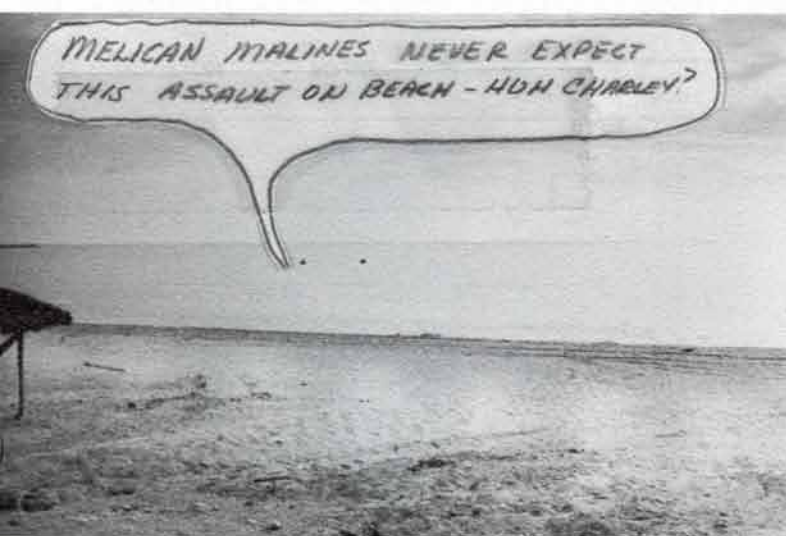 MELICAN MALINES NEVER EXPECT
THIS ASSAULT ON BEACH - HUH CHARLEY?